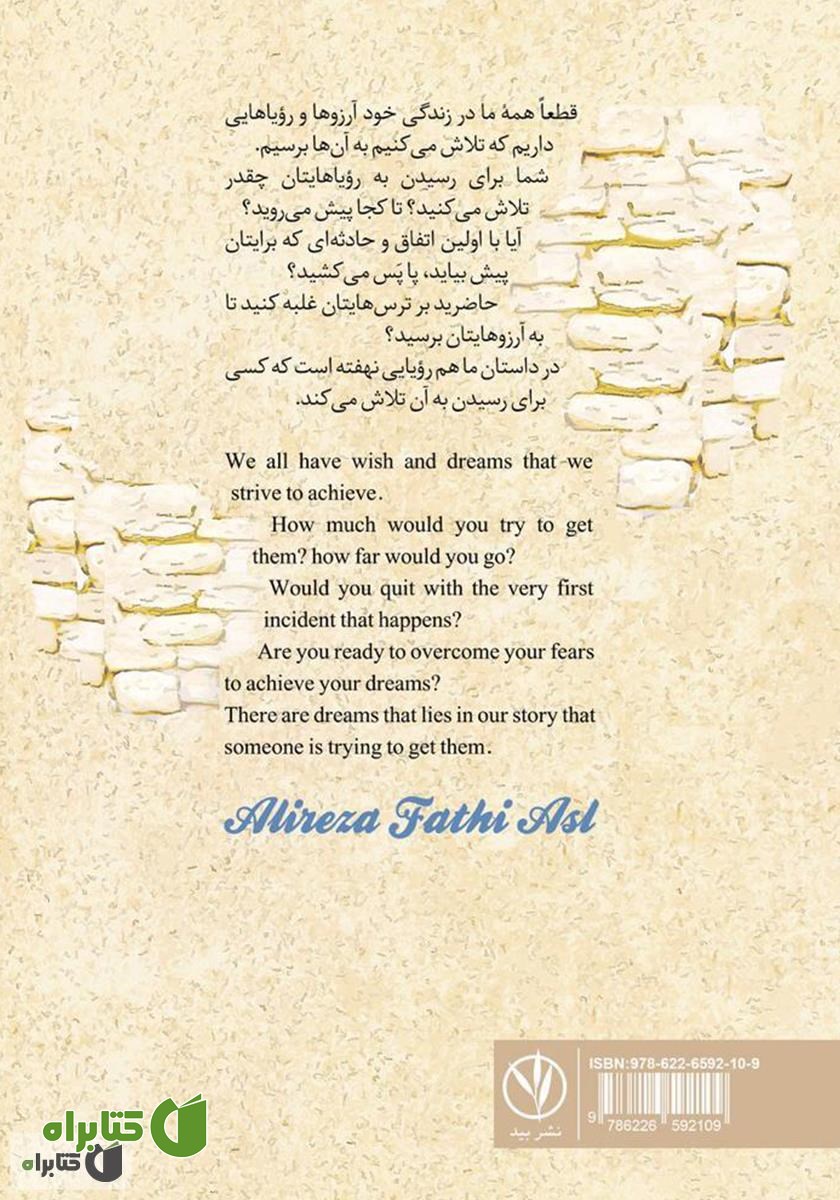 قطعاً همهٔ ما در زندگی خود آرزوها و رؤیاهایی
داریم که تلاش می‌کنیم به آن‌ها برسیم.
شما برای رسیدن به رؤیاهایتان چقدر
تلاش می‌کنید؟ تا کجا پیش می‌روید؟
آیا با اولین اتفاق و حادثه‌ای که برایتان
پیش بیاید، پا پَس می‌کشید؟
حاضرید بر ترس‌هایتان غلبه کنید تا
به آرزوهایتان برسید؟
در داستان ما هم رؤیایی نهفته است که کسی
برای رسیدن به آن تلاش می‌کند.
We all have wish and dreams that we
strive to achieve.
How much would you try to get
them? how far would you go?
Would you quit with the very first
incident that happens?
Are you ready to overcome your fears
to achieve your dreams?
There are dreams that lies in our story that
someone is trying to get them.
Alireza Fathi Asl
ISBN:978-622-6592-10-9
9 786226 592109
نشر بید
کتابراه
کتابراه